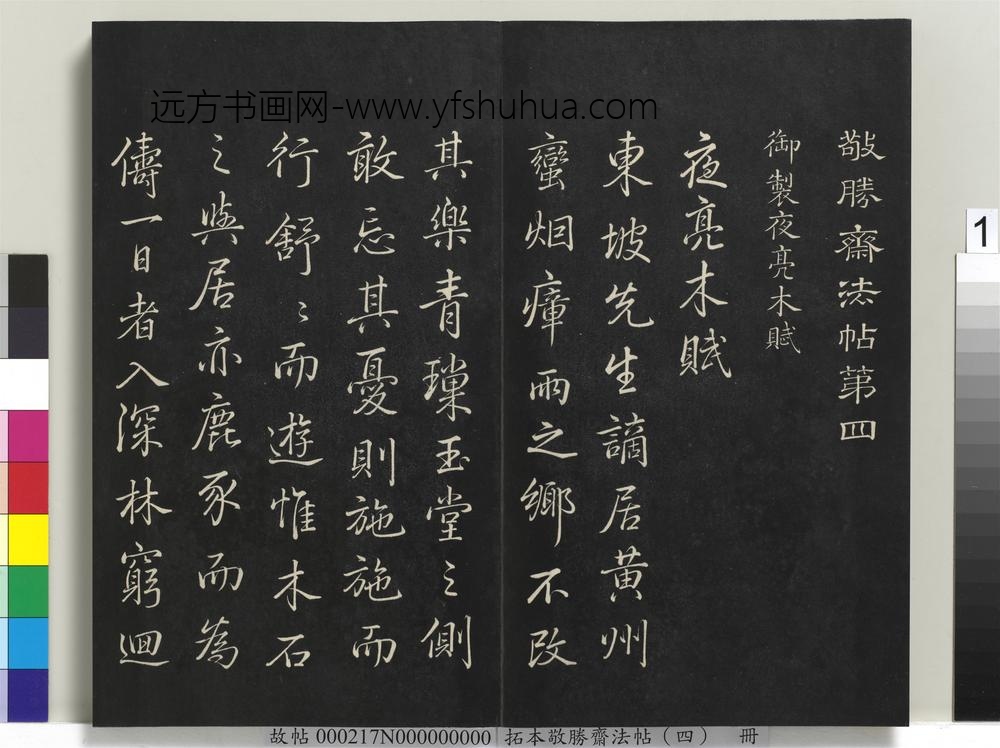 远方书画网-www.yfshuhua.com
敬勝齋法帖第四
御製夜亮木賦
夜亮木賦
東坡先生謫居黃州
蠻烟瘴雨之鄉不改
其樂青瑣玉堂之側
敢忘其憂則施施而
行舒〻而遊惟木石
之與居亦鹿豕而為
儔一日者入深林窮迴
1
故帖 000217N000000000 拓本敬勝齋法帖（四） 冊